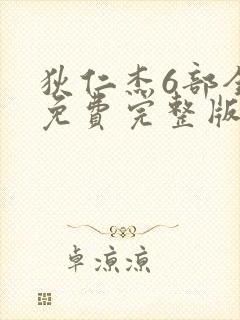 狄仁杰6部全
免費完整版
卓凉凉